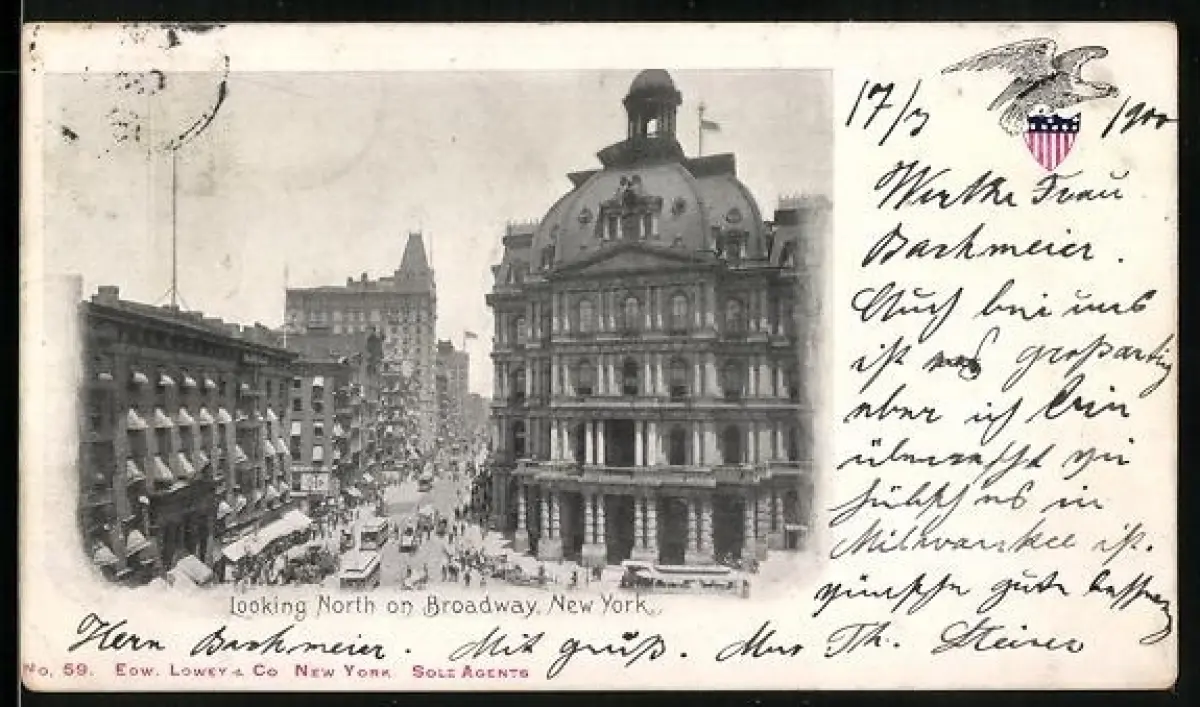 17/3 1900
Werthe Frau
Bachmeier.
Auch bei uns
ist es großartig
aber ich bin
überrascht wie
hübsch es in
Milwaukee ist.
wünsche gute besserung
Herrn Bachmeier. Mit gruß. Th. Steiner
Looking North on Broadway, New York.
No. 59. Edw. Lowey & Co New York Sole Agents